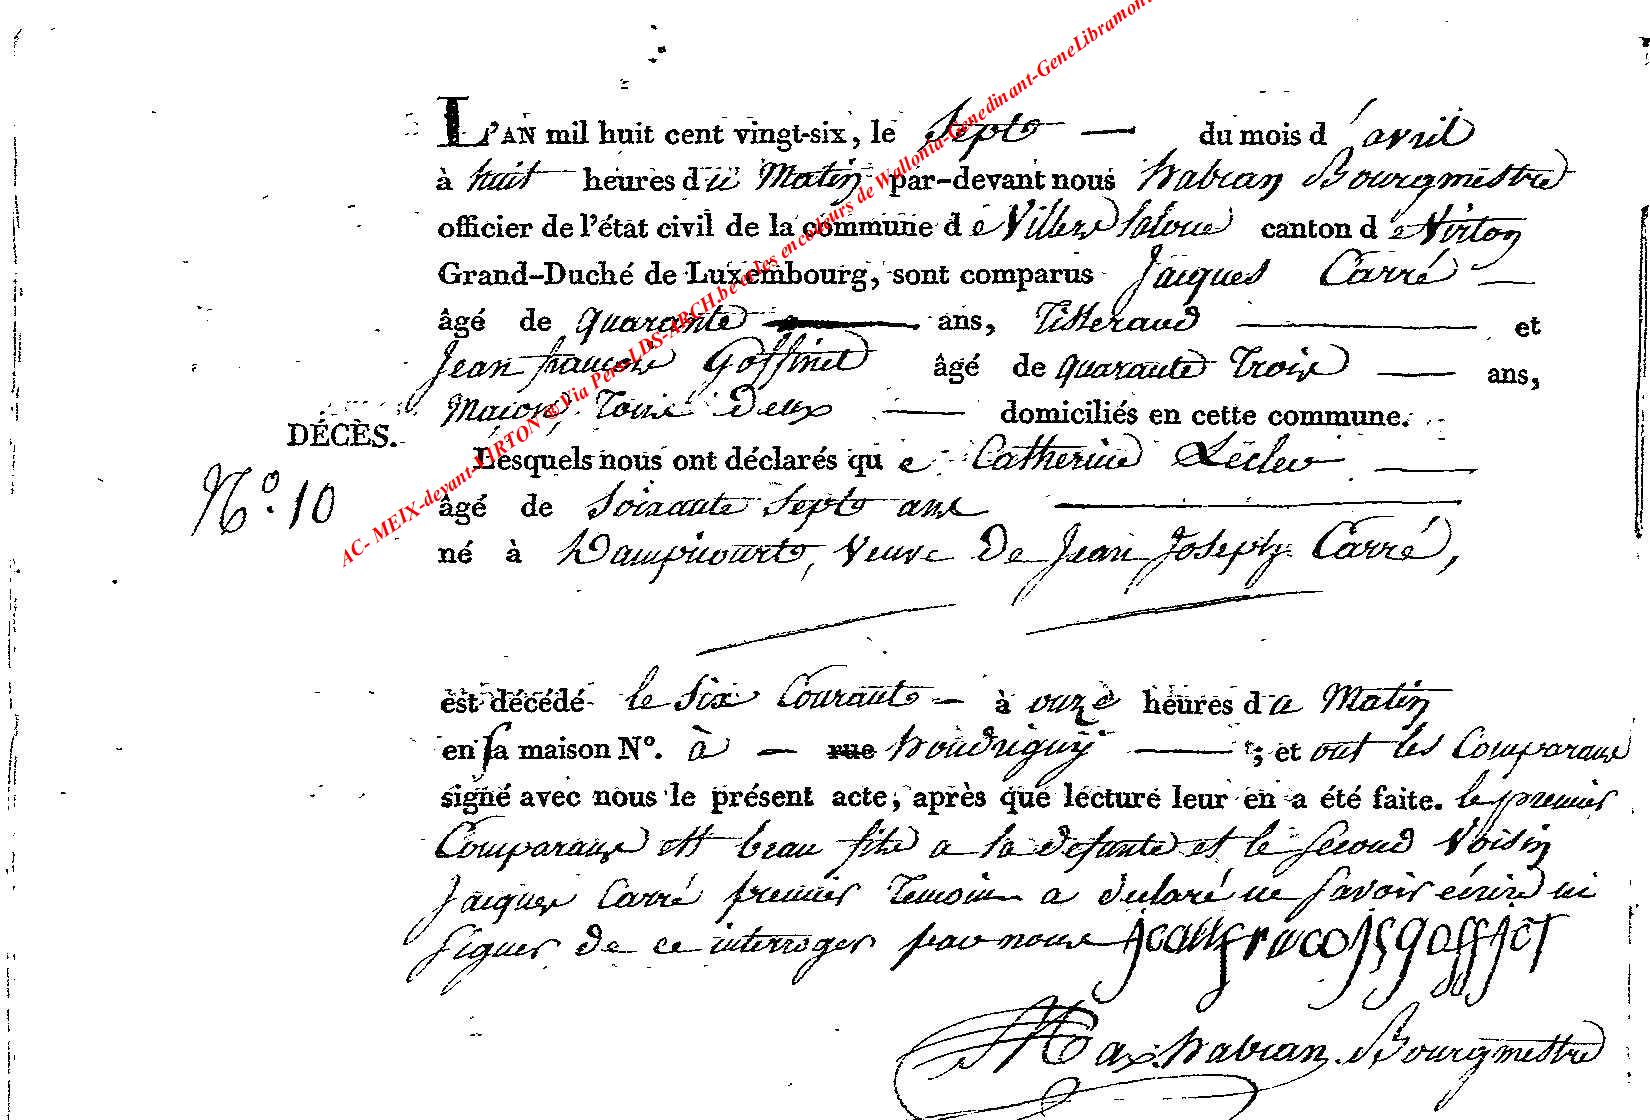 L'AN mil huit cent vingt-six, le Sept — du mois d'avril
à huit heures du Matin par-devant nous habran Bourgmestre
officier de l'état civil de la commune de Villers laloue canton de Virton
Grand-Duché de Luxembourg, sont comparus Jacques Carré —
âgé de quarante — ans, Tisserand — et
Jean françois Goffinet âgé de quarante Trois — ans,
Maçon, Tous Deux — domiciliés en cette commune.
DÉCÈS.
Lesquels nous ont déclarés que Catherine Lecler —
N.° 10
âgé de Soixante Sept ans —
né à Dampicourt, Veuve De Jean Joseph Carré,
est décédé le Six Courant — à onze heures du Matin
en sa maison N°. à — rue houdrigny — ; et ont les Comparans
signé avec nous le présent acte, après que lecture leur en a été faite. le premier
Comparans est beau fils a la defunte et le second Voisin
Jacques Carré premier Temoin a declaré ne savoir écrire ni
signer de ce interroger par nous jean francois goffinet
Max habran Bourgmestre
AC- MEIX-devant-VIRTON @Via Pero-LDS-ARCH.be et les encodeurs de Wallonia-Genedinant-GeneLibramont